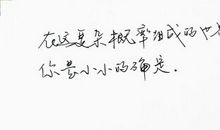 在这复杂概率组成的世
你是小小的确定.